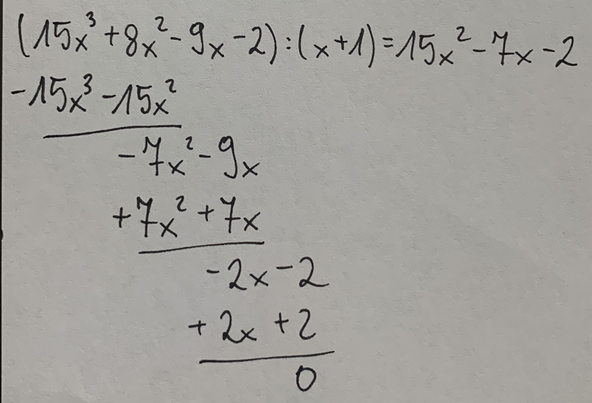 (15x³+8x²-9x-2):(x+1)=15x²-7x-2
-15x³-15x²
-7x²-9x
+7x²+7x
-2x-2
+2x+2
0